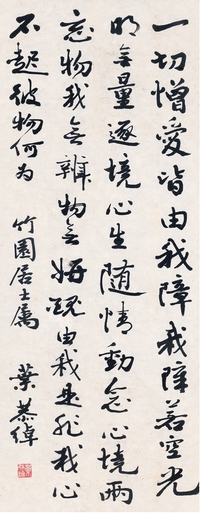 一切憎愛皆由我障我障若空光
明無量逐境心生隨情動念心境兩
忘物我無辨物無妍醜由我是非我心
不起彼物何為 竹園居士屬 葉恭綽